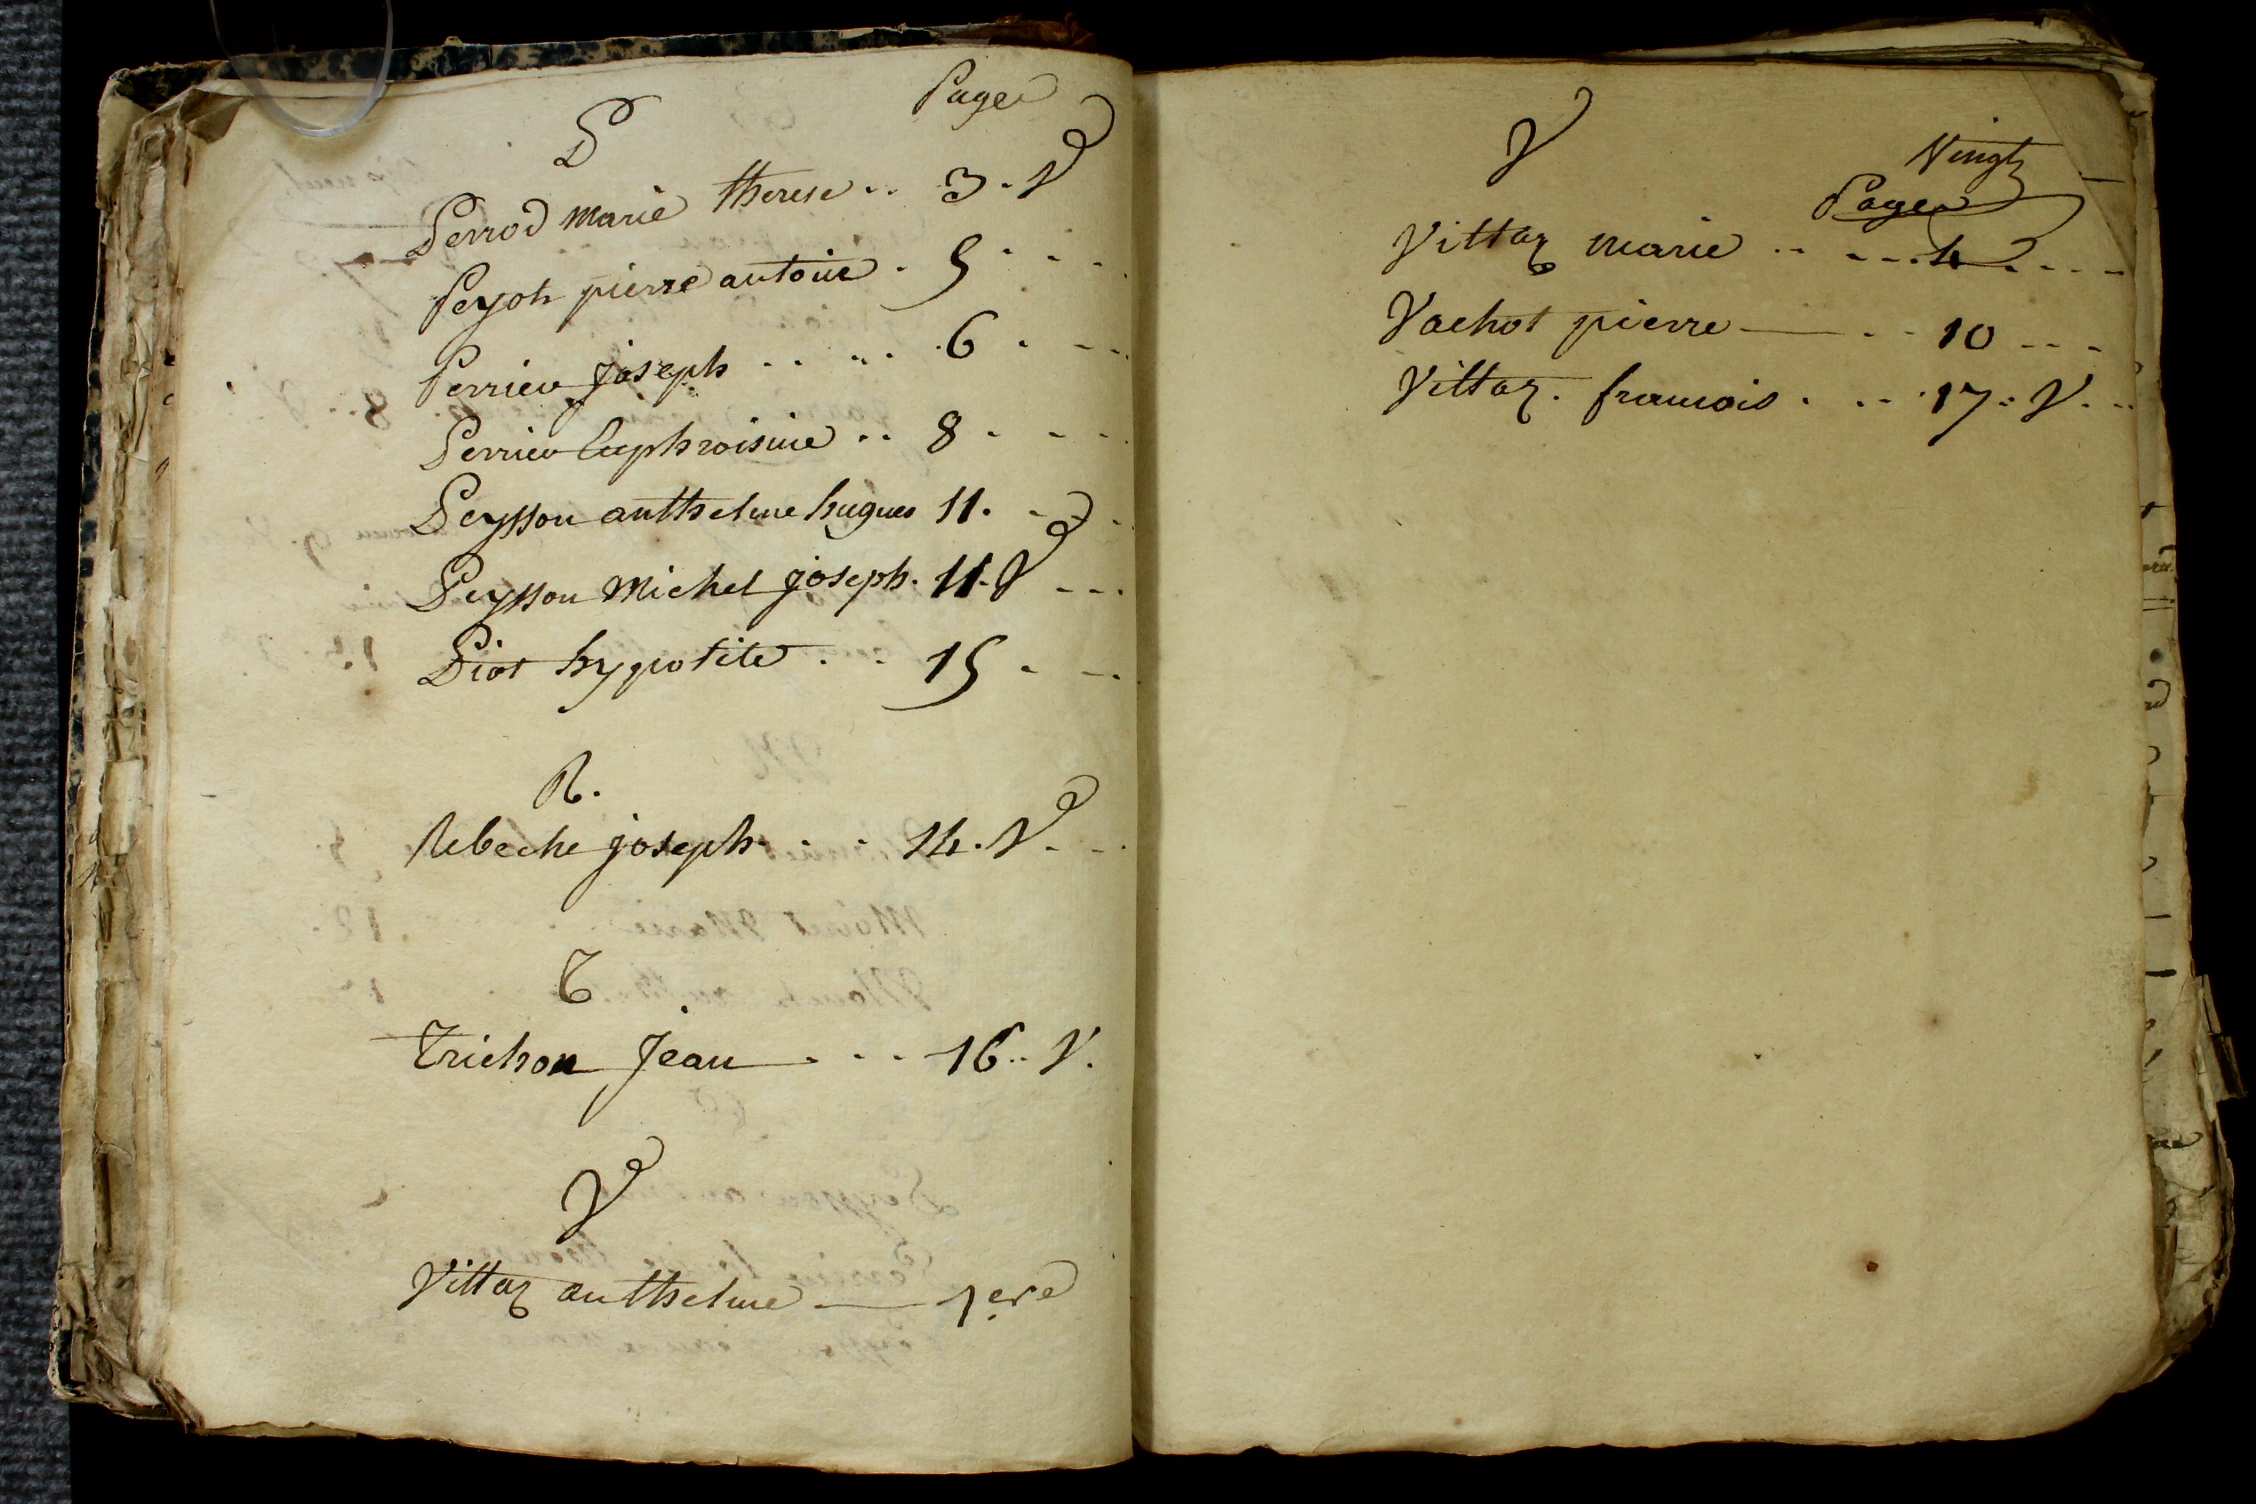 P
Pages
Perrod marie therese .. 3. V
Peyot pierre antoine . 5
Perrieu joseph . . . . . 6
Perrieu Euphroisine .. 8
Peysson anthelme hugues 11.
Peysson Michel joseph. 11. V
Piot hypolite . . 15
R.
Rebeche joseph . . 14. V
T
Trichon Jean . . . 16.. V.
V
Vittoz anthelme — 1ere
Vingt
V
Pages
Vittoz marie . . . . . 4
Vachot pierre — . . 10
Vittoz. francois . . . . 17. V.